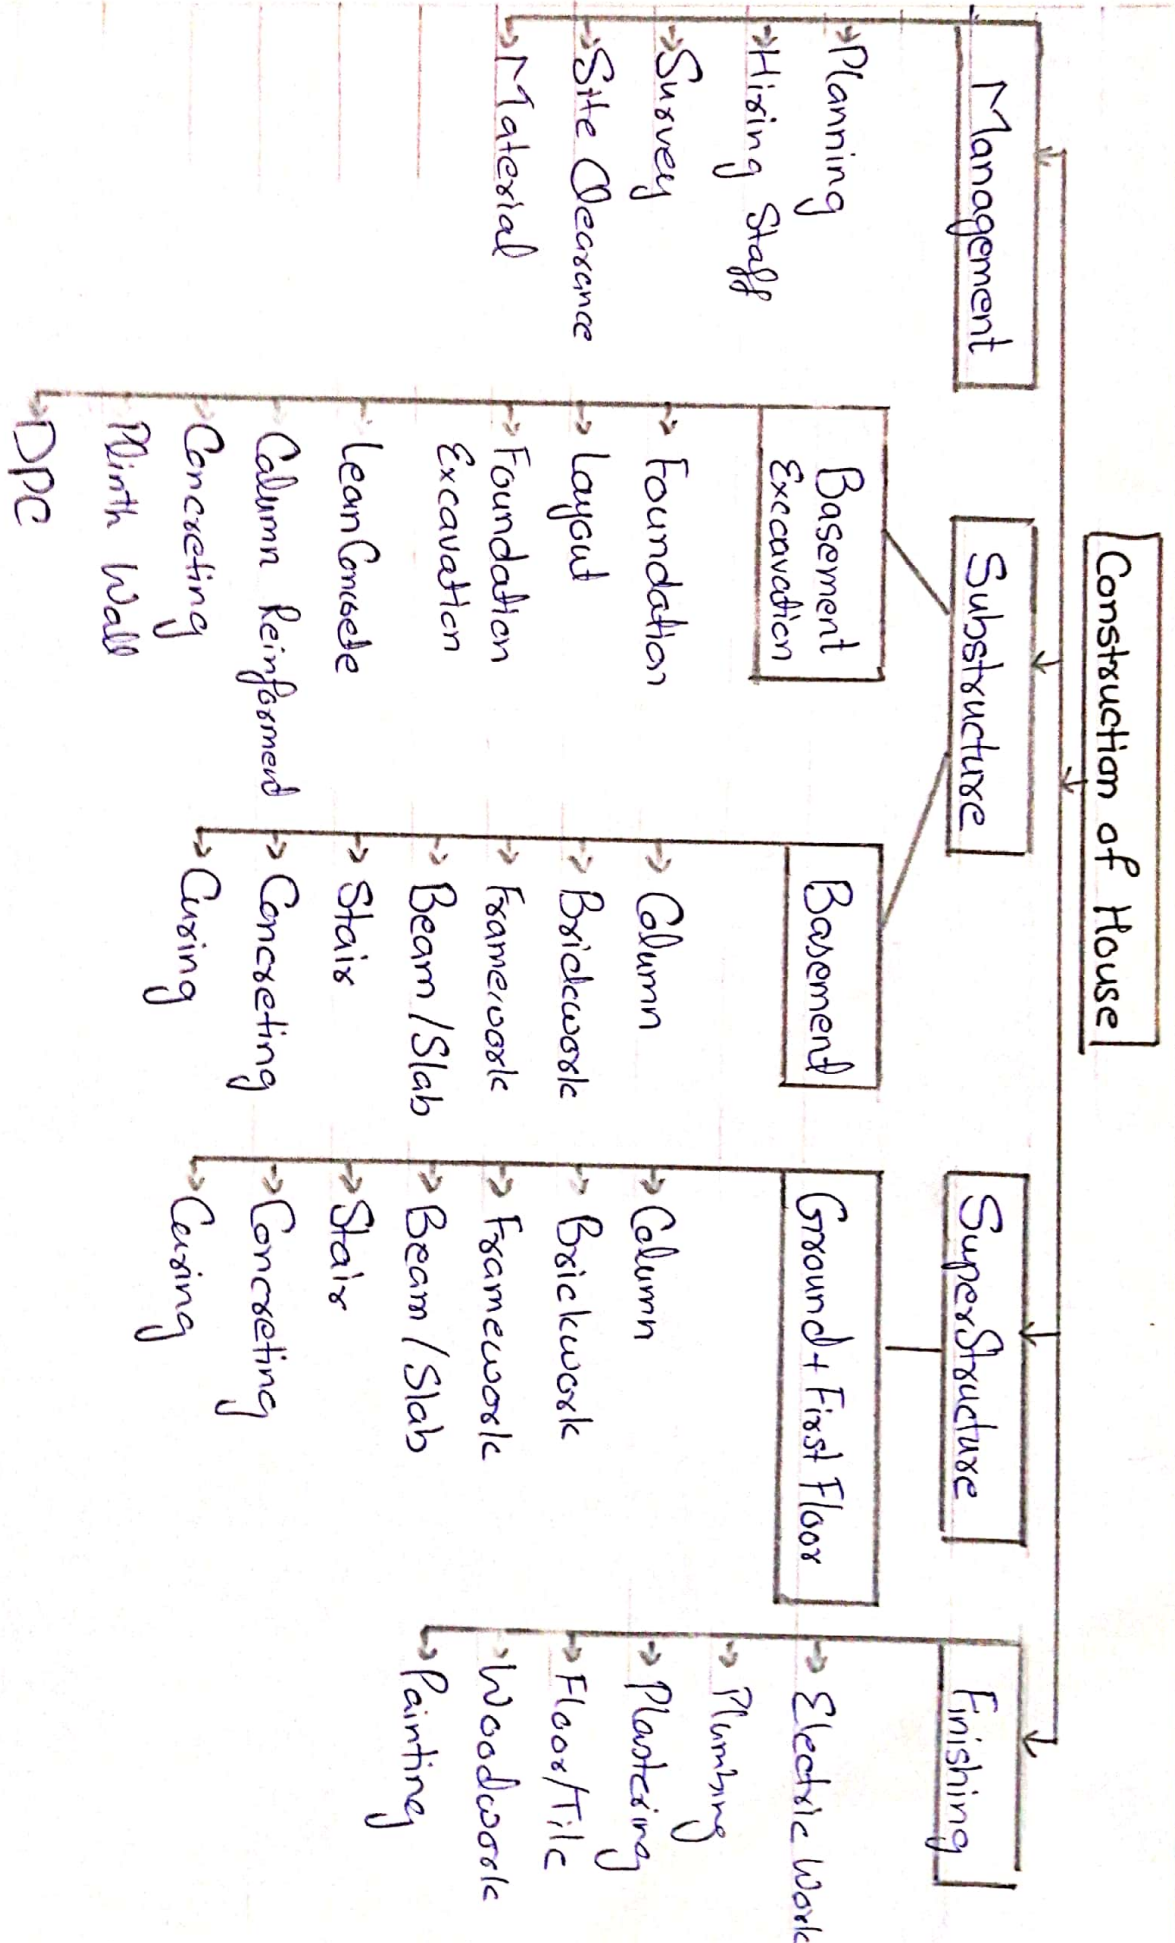 Construction of House
Management
Planning
Hiring Staff
Survey
Site Clearance
Material
Substructure
Basement
Excavation
Foundation
Layout
Foundation
Excavation
Lean Concrete
Column Reinforment
Concreting
Plinth Wall
DPC
Basement
Column
Brickwork
Framework
Beam/Slab
Stair
Concreting
Curing
SuperStructure
Ground + First Floor
Column
Brickwork
Framework
Beam/Slab
Stair
Concreting
Curing
Finishing
Electric Work
Plumbing
Plastering
Floor/Tile
Woodwork
Painting